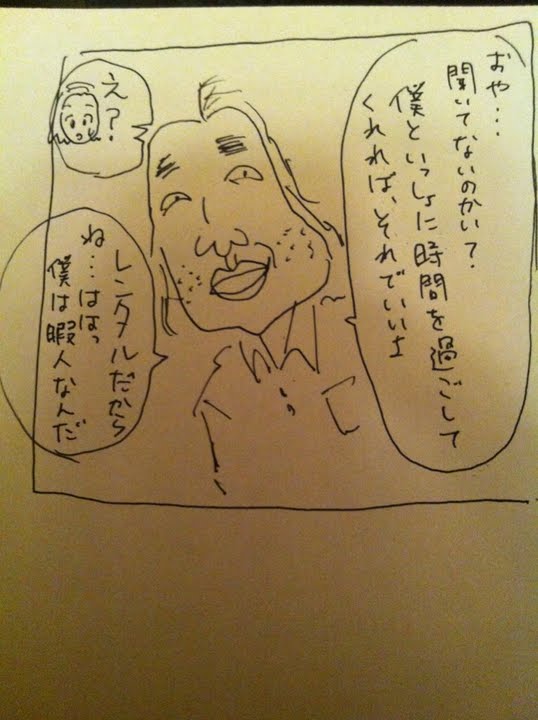 おや…
聞いてないのかい？
僕といっしょに時間を過ごして
くれれば、それでいいよ
え？
レンタルだから
ね…ははっ
僕は暇人なんだ